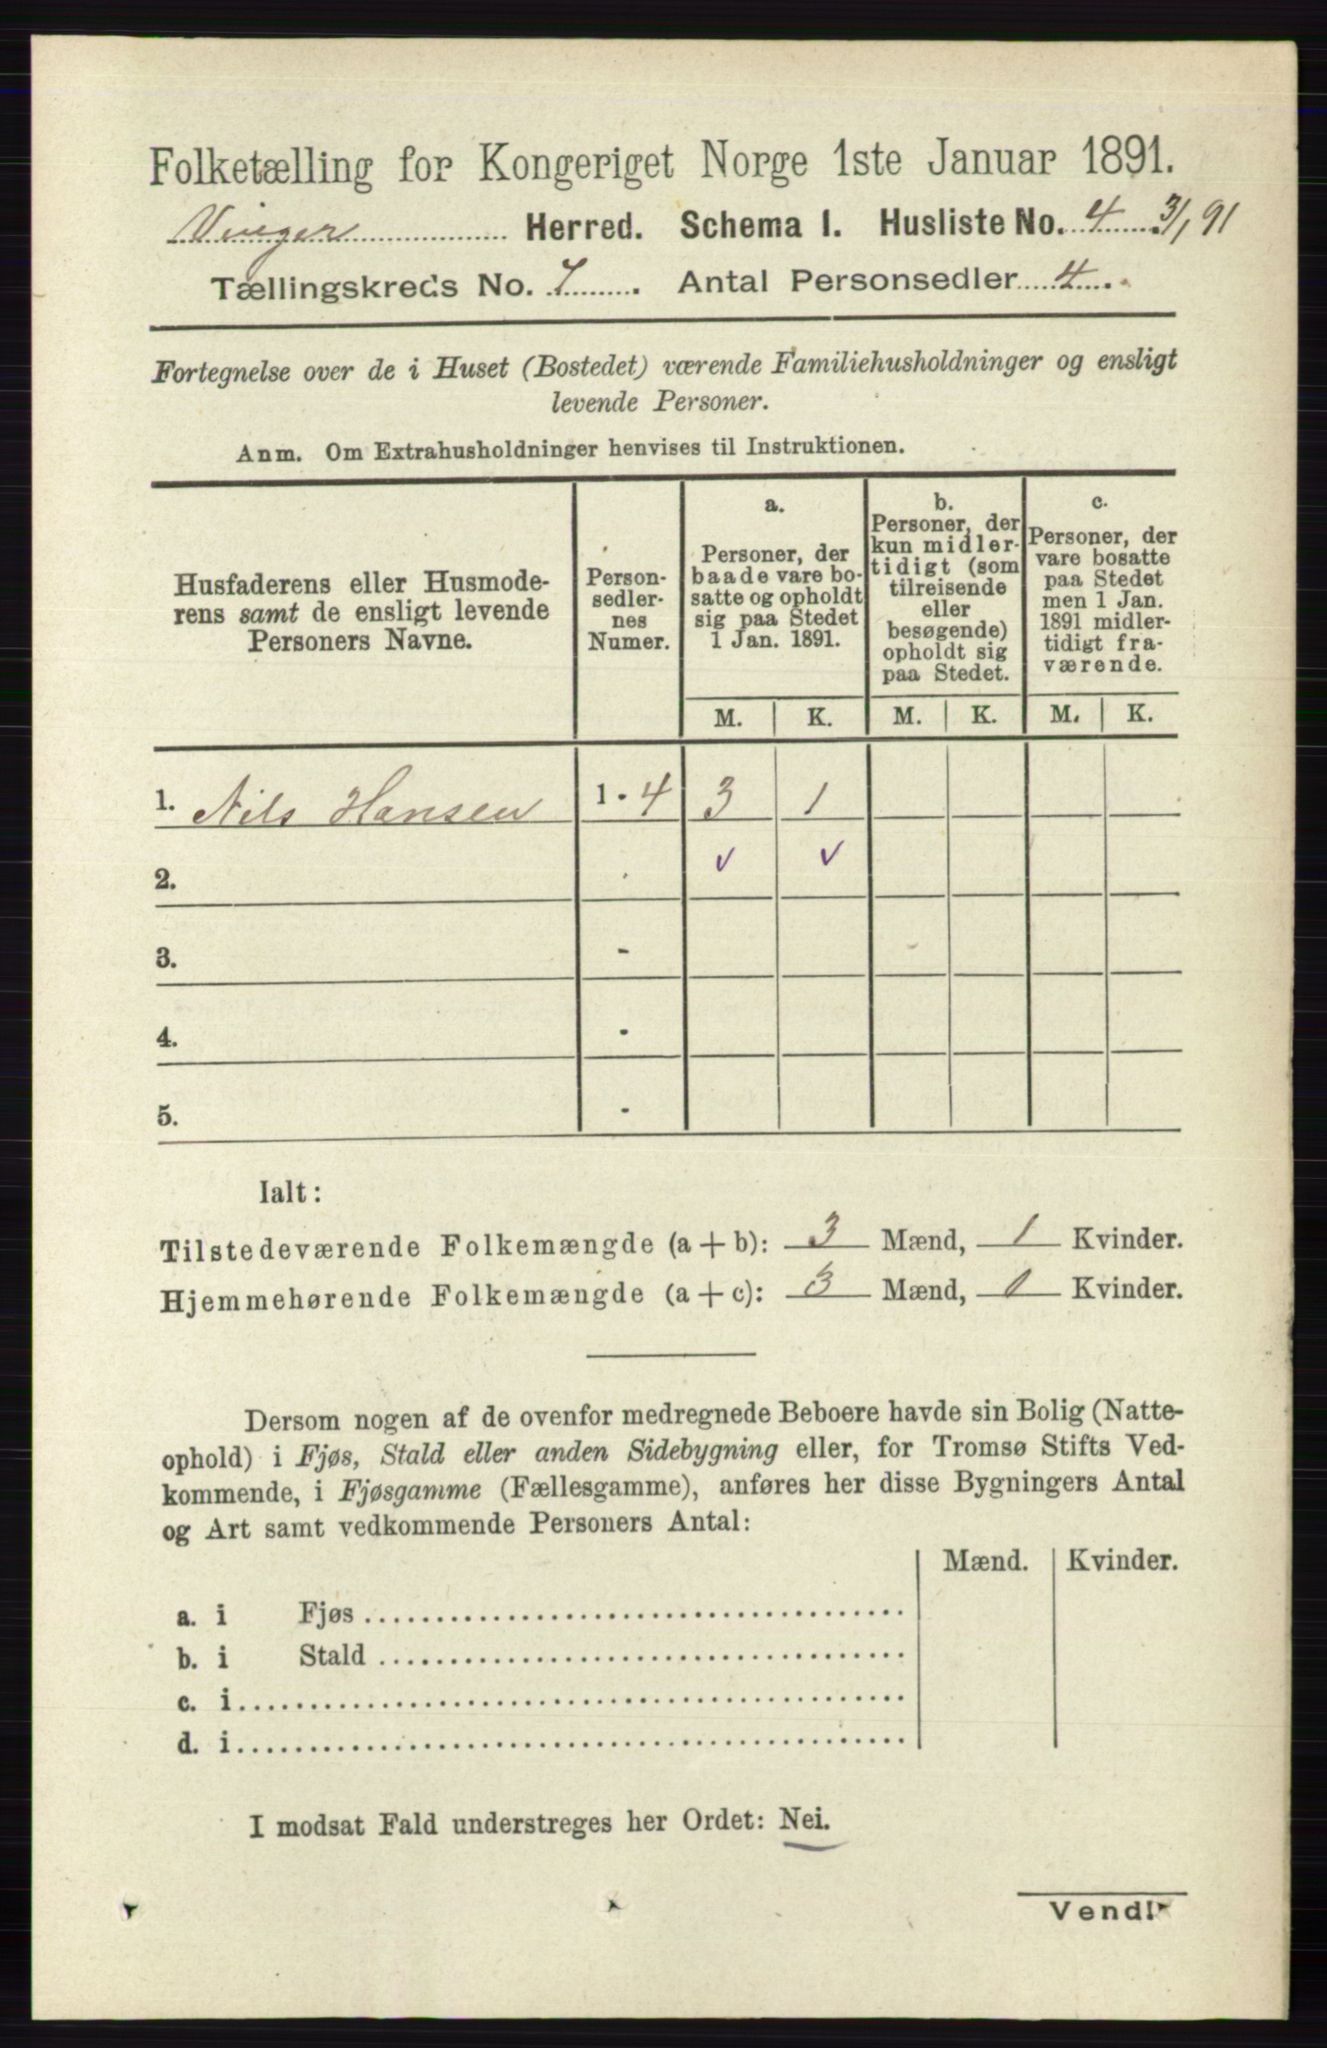 Folketælling for Kongeriget Norge 1ste Januar 1891.
Vinger Herred. Schema I. Husliste No. 4 3/1 91
Tællingskreds No. 7. Antal Personsedler 4.
Fortegnelse over de i Huset (Bostedet) værende Familiehusholdninger og ensligt
levende Personer.
Anm. Om Extrahusholdninger henvises til Instruktionen.
Husfaderens eller Husmode-
rens samt de ensligt levende
Personers Navne.
Person-
sedler-
nes
Numer.
a.
Personer, der
baade vare bo-
satte og opholdt
sig paa Stedet
1 Jan. 1891.
b.
Personer, der
kun midler-
tidigt (som
tilreisende
eller
besøgende)
opholdt sig
paa Stedet.
c.
Personer, der
vare bosatte
paa Stedet
men 1 Jan.
1891 midler-
tidigt fra-
værende.
M. K. M. K. M. K.
1. Nils Hansen 1 - 4 3 1
2. - ✓ ✓
3. -
4. -
5. -
Ialt:
Tilstedeværende Folkemængde (a + b): 3 Mænd, 1 Kvinder.
Hjemmehørende Folkemængde (a + c): 3 Mænd, 1 Kvinder.
Dersom nogen af de ovenfor medregnede Beboere havde sin Bolig (Natte-
ophold) i Fjøs, Stald eller anden Sidebygning eller, for Tromsø Stifts Ved-
kommende, i Fjøsgamme (Fællesgamme), anføres her disse Bygningers Antal
og Art samt vedkommende Personers Antal:
Mænd. Kvinder.
a. i Fjøs
b. i Stald
c. i
d. i
I modsat Fald understreges her Ordet: Nei.
Vend!